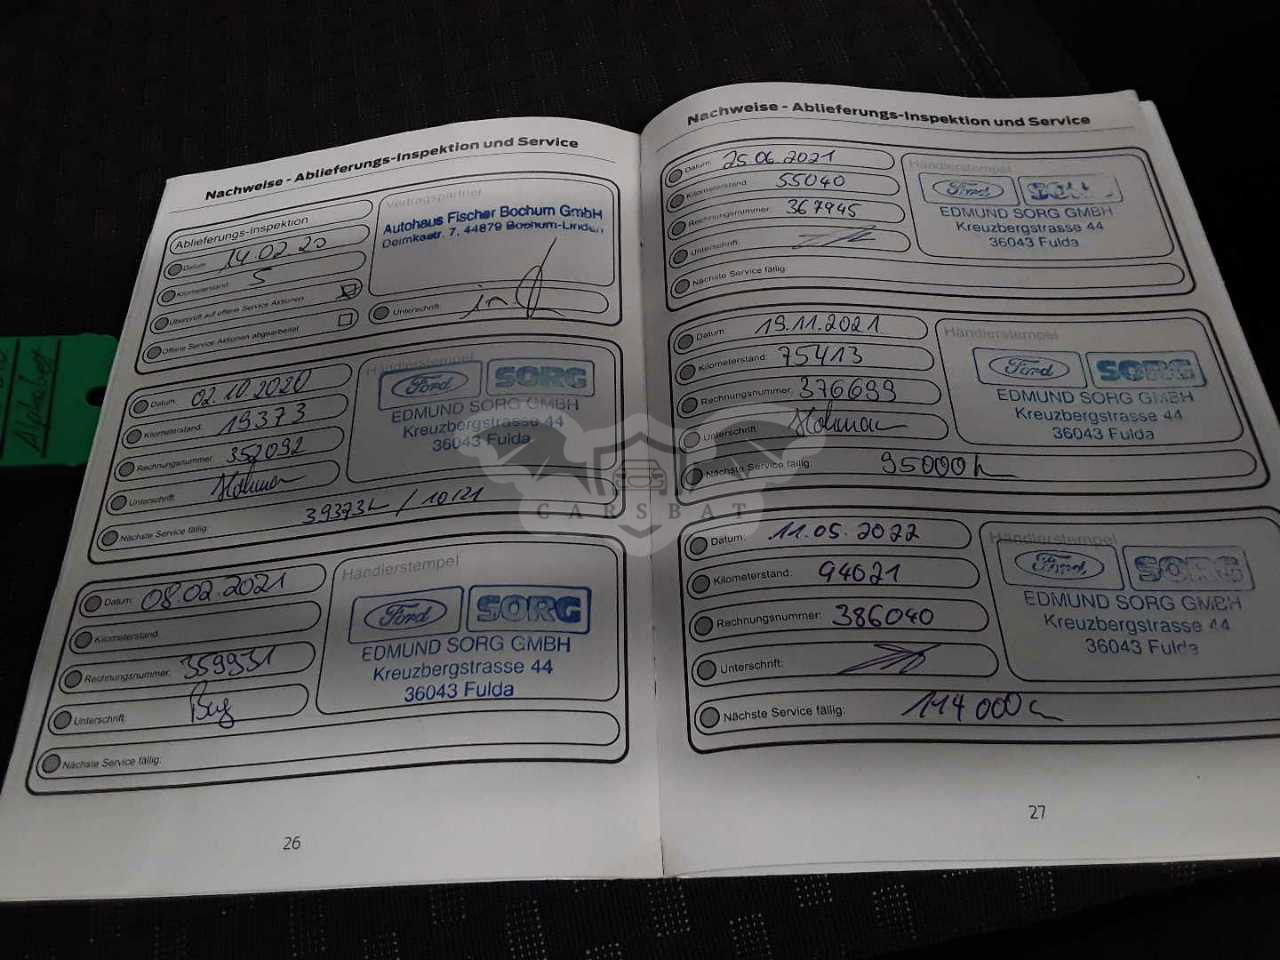 Nachweise - Ablieferungs-Inspektion und Service
Ablieferungs-Inspektion
Datum: 14.02 20
Kilometerstand: 5
Überprüft auf offene Service Aktionen
Offene Service Aktionen abgearbeitet
Vertragspartner
Autohaus Fischer Bochum GmbH
Deimkestr. 7, 44879 Bochum-Linden
Unterschrift:
Datum: 02.10.2020
Kilometerstand: 19373
Rechnungsnummer: 352092
Unterschrift:
Nächste Service fällig: 39373k / 10/21
Händlerstempel
Ford SORG
EDMUND SORG GMBH
Kreuzbergstrasse 44
36043 Fulda
Datum: 08.02.2021
Kilometerstand:
Rechnungsnummer: 359931
Unterschrift:
Nächste Service fällig:
Händlerstempel
Ford SORG
EDMUND SORG GMBH
Kreuzbergstrasse 44
36043 Fulda
26
Nachweise - Ablieferungs-Inspektion und Service
Datum: 25.06.2021
Kilometerstand: 55040
Rechnungsnummer: 367945
Unterschrift:
Nächste Service fällig:
Händlerstempel
Ford
EDMUND SORG GMBH
Kreuzbergstrasse 44
36043 Fulda
Datum: 19.11.2021
Kilometerstand: 75413
Rechnungsnummer: 376699
Unterschrift:
Nächste Service fällig: 95000k
Händlerstempel
Ford SORG
EDMUND SORG GMBH
Kreuzbergstrasse 44
36043 Fulda
Datum: 11.05.2022
Kilometerstand: 94021
Rechnungsnummer: 386040
Unterschrift:
Nächste Service fällig: 114000k
Händlerstempel
Ford SORG
EDMUND SORG GMBH
Kreuzbergstrasse 44
36043 Fulda
27
Alphabet
CARSBAT